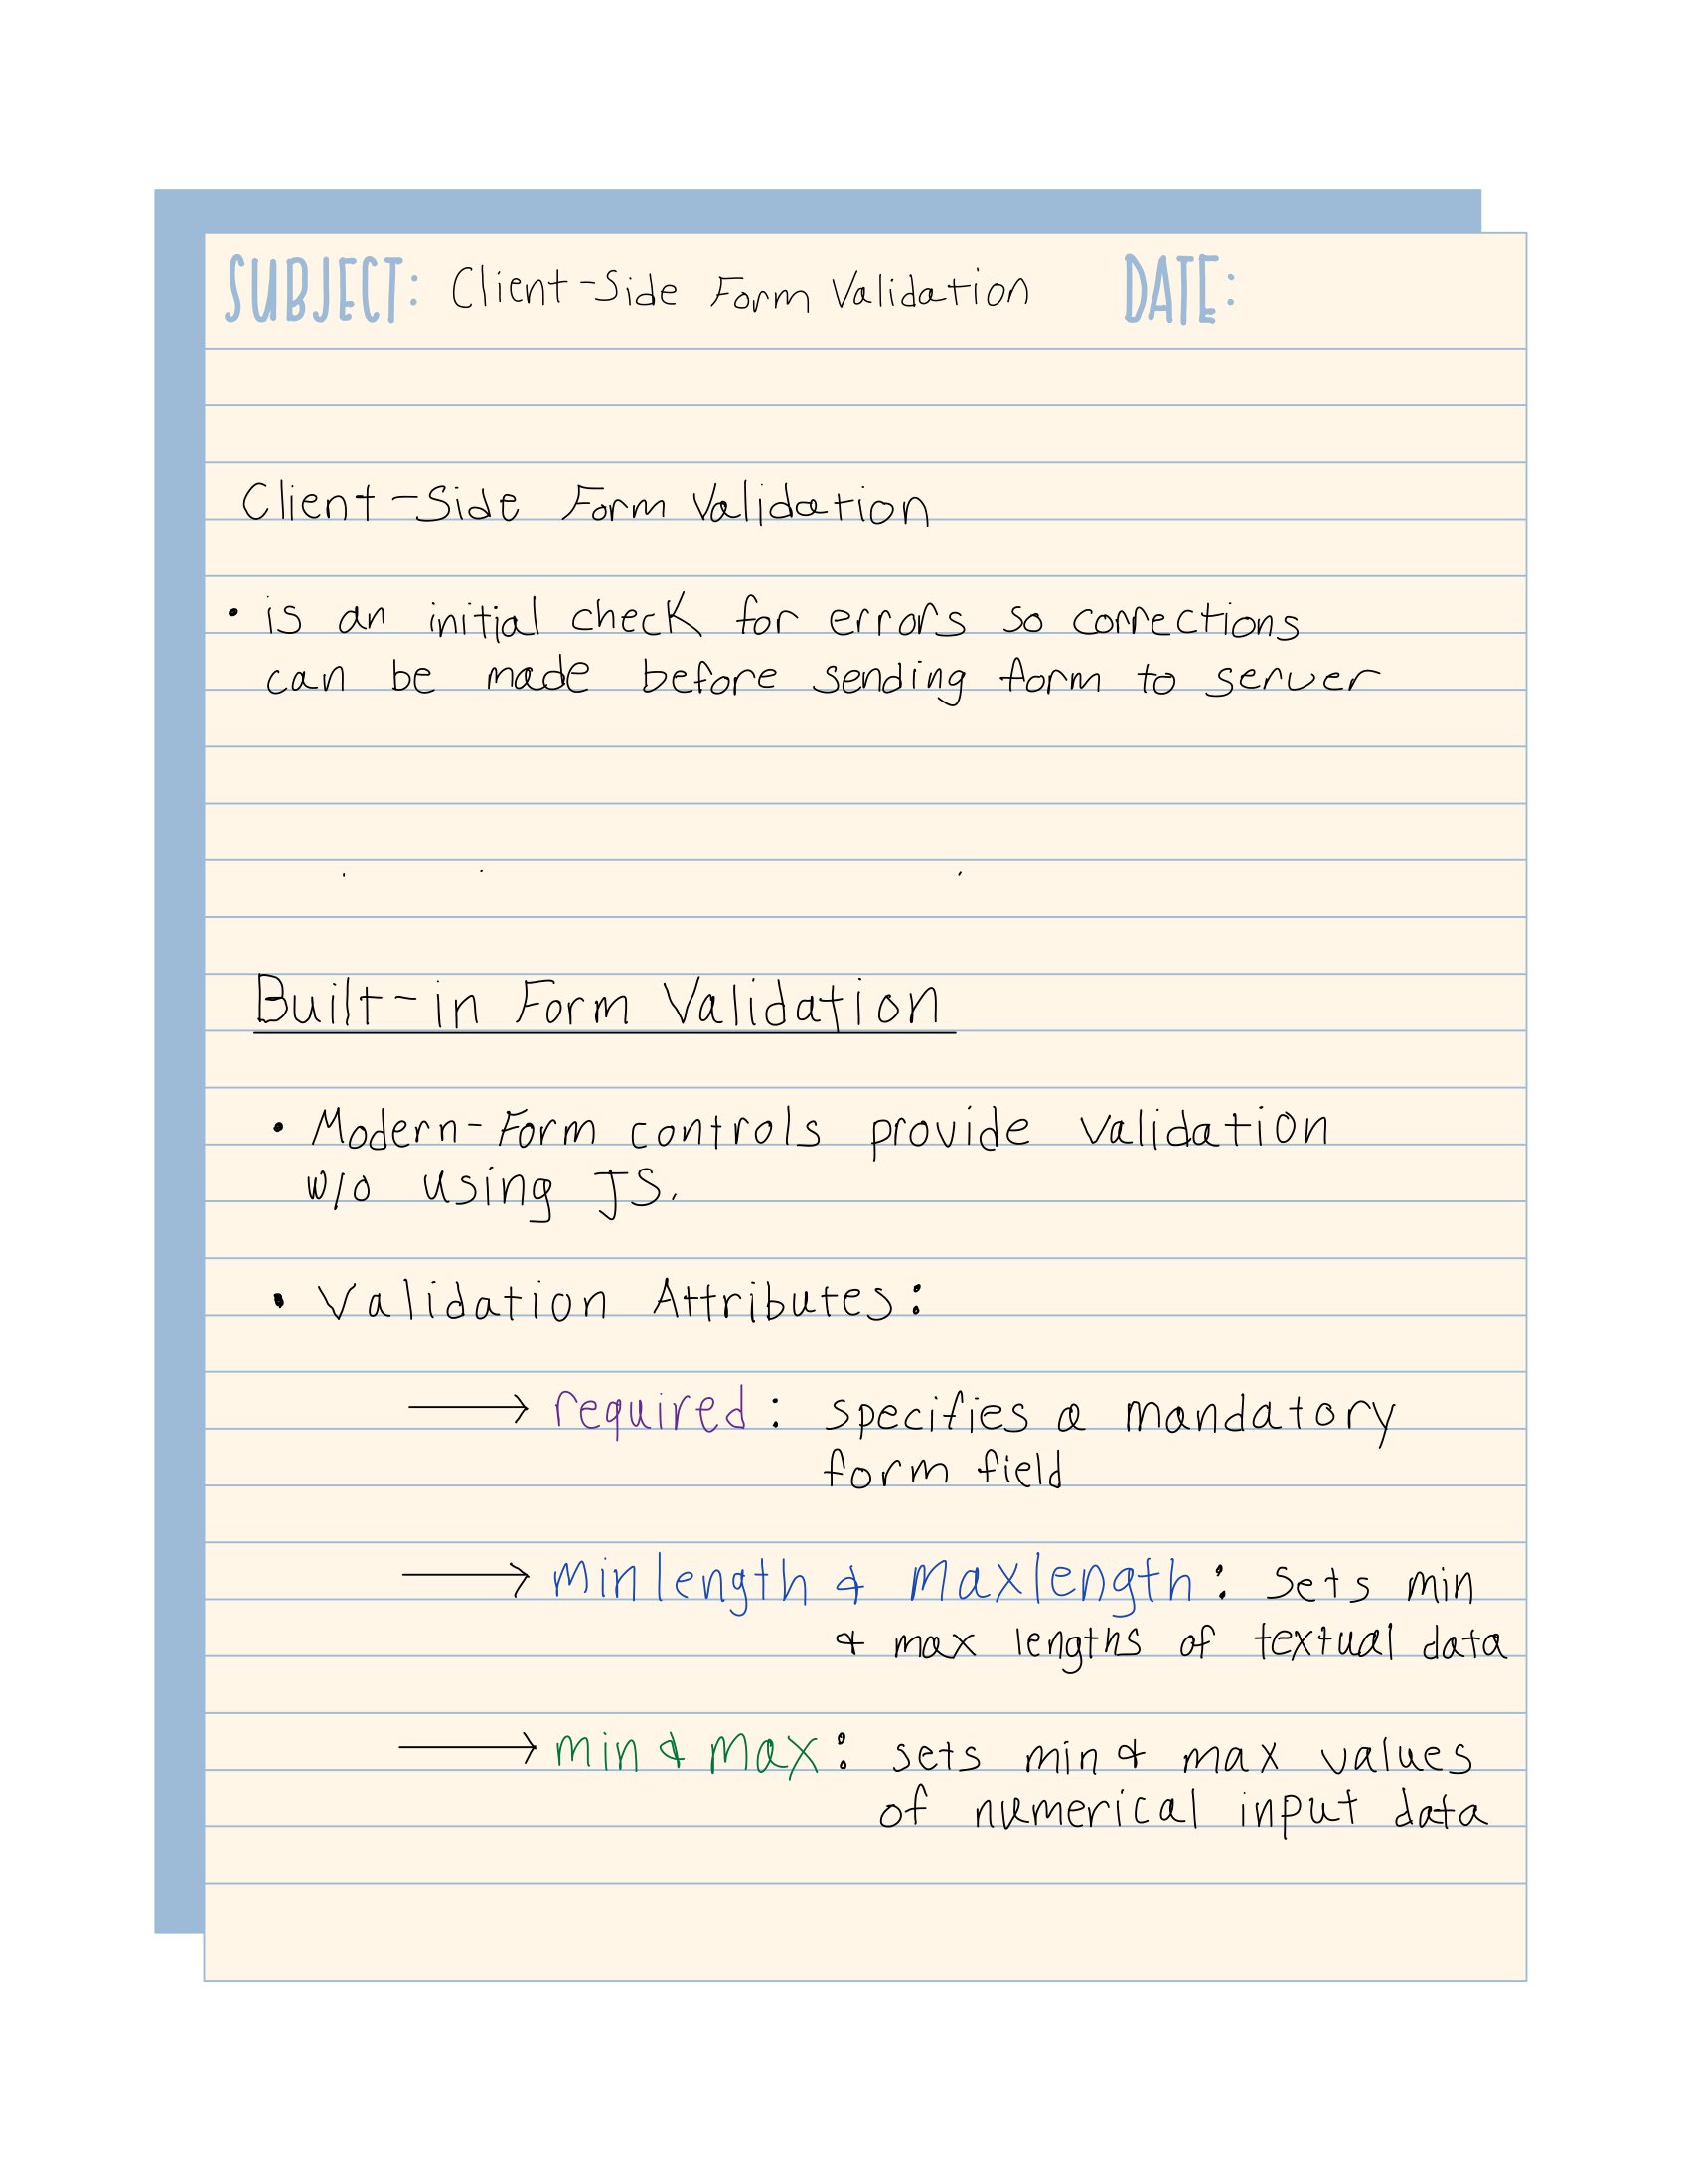 SUBJECT: Client-Side Form Validation DATE:
Client-Side Form Validation
• is an initial check for errors so corrections
can be made before sending form to server
Built-in Form Validation
• Modern-Form controls provide validation
w/o using JS.
• Validation Attributes:
→ required: specifies a mandatory
form field
→ minlength & maxlength: sets min
& max lengths of textual data
→ min & max: sets min & max values
of numerical input data